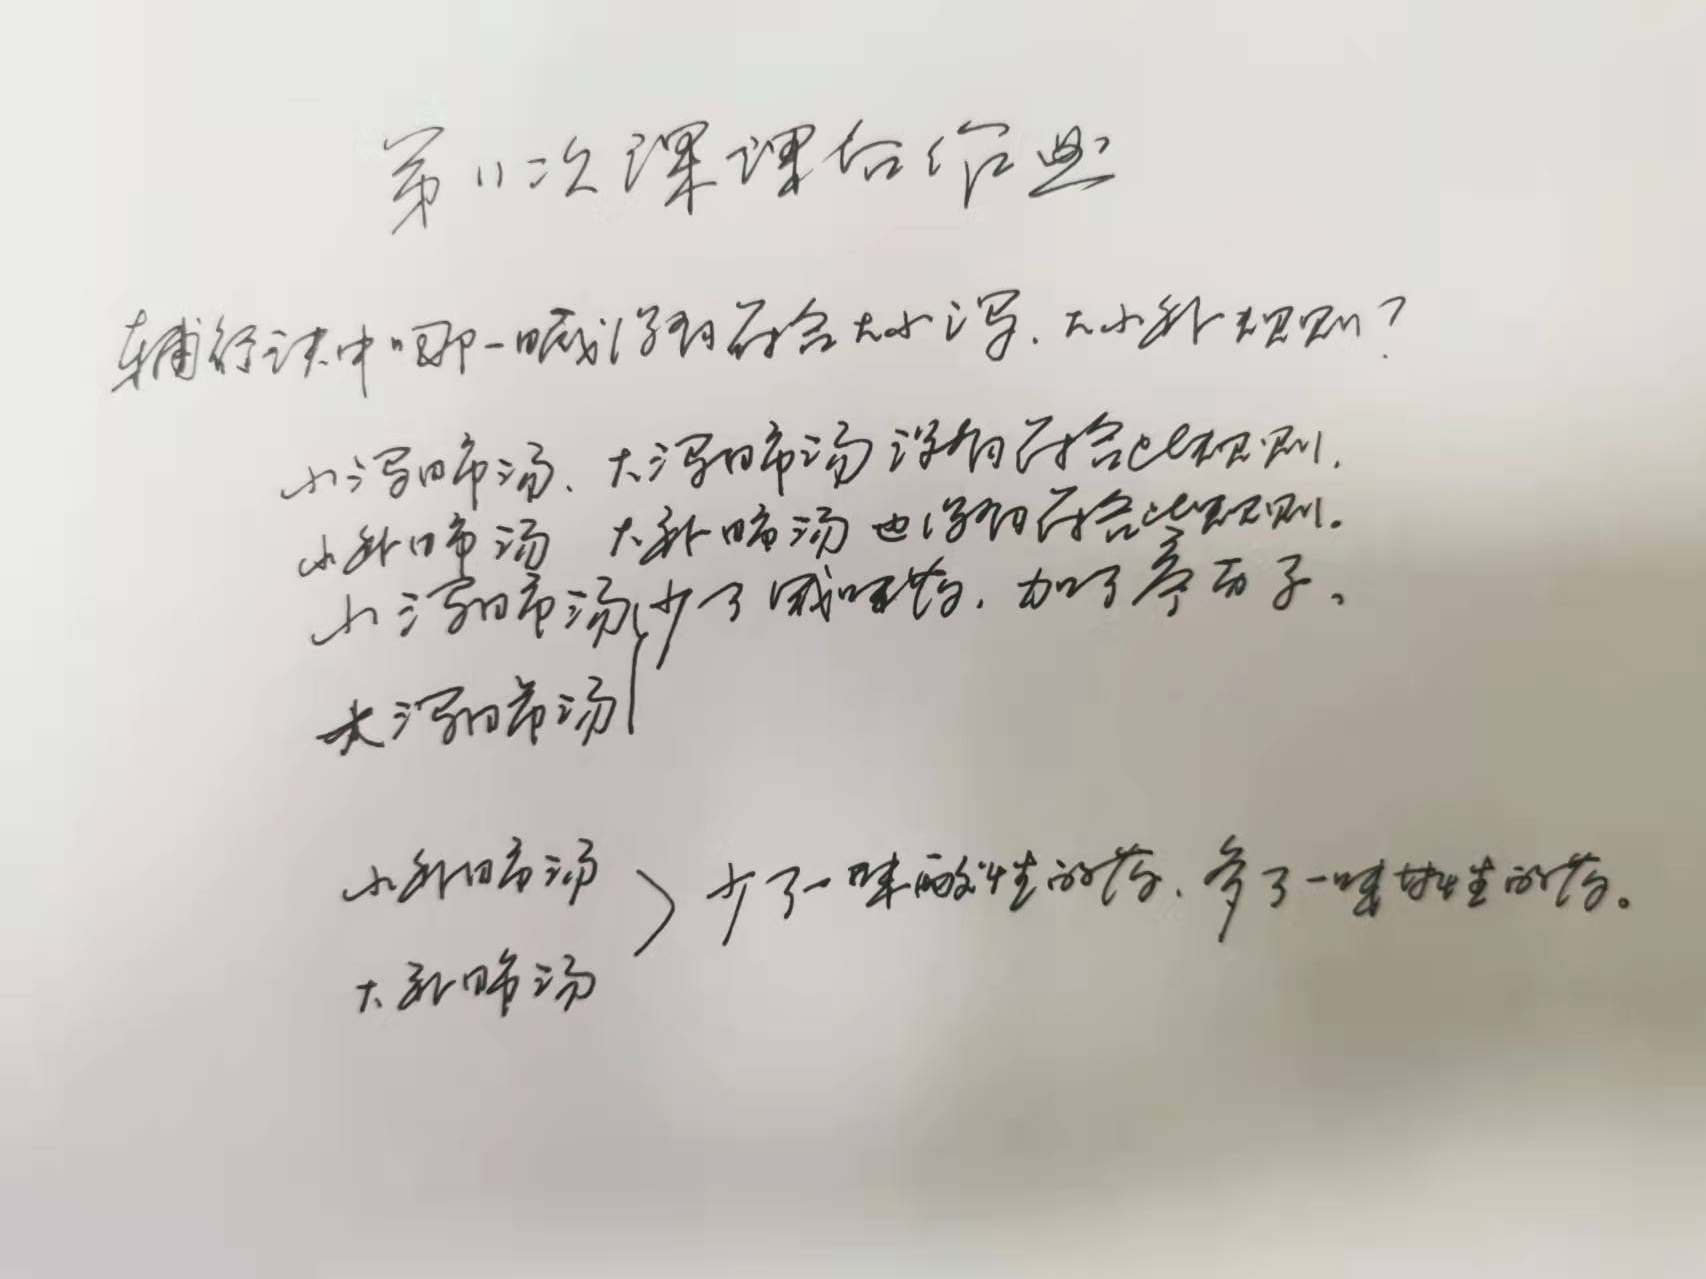 第11次课课后作业
辅行诀中哪一脏没有符合大小泻、大小补规则?
小泻肺汤、大泻肺汤没有符合此规则.
小补肺汤 大补肺汤也没有符合此规则。
小泻肺汤 少了咸味药、加了葶苈子。
大泻肺汤
小补肺汤 少了一味酸性的药、多了一味甘性的药。
大补肺汤